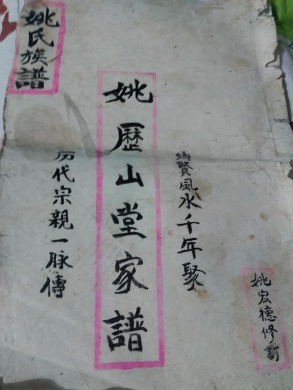 姚氏族譜
賢風水千年聚
姚歷山堂家譜
历代宗親一脉傳
姚宏德修訂